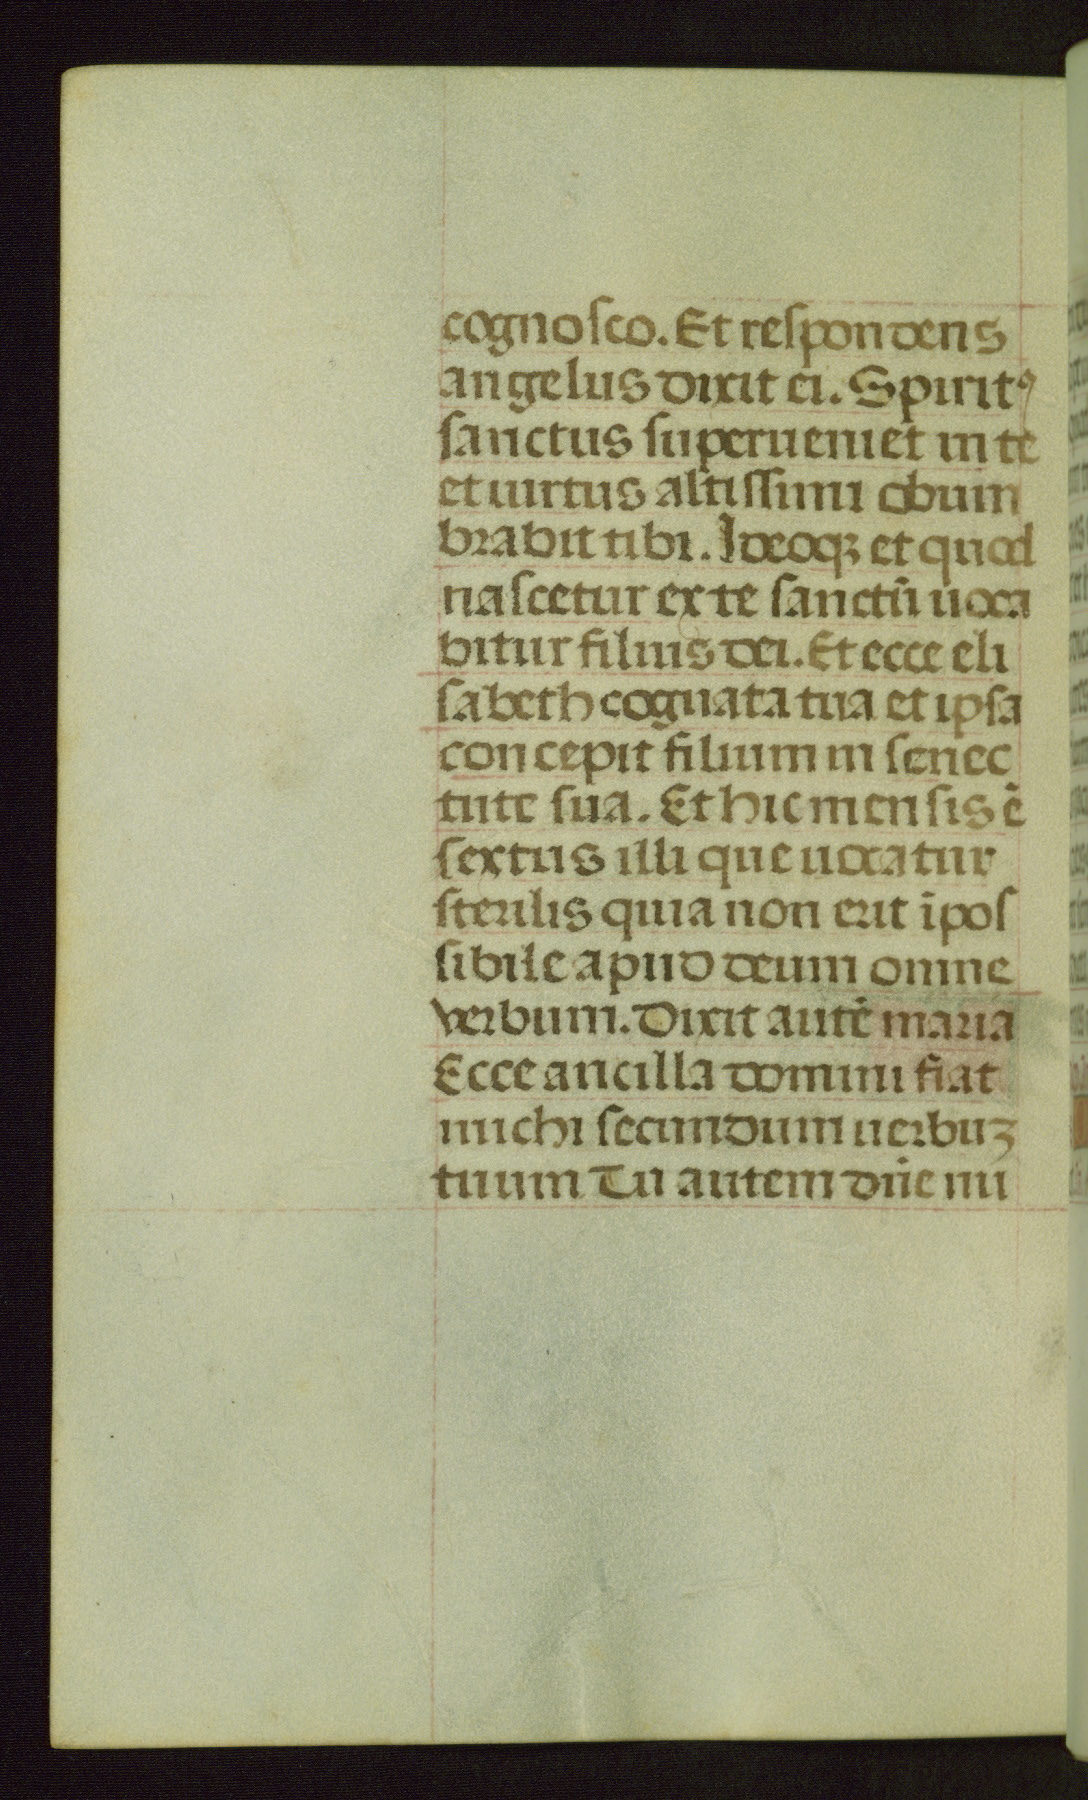 cognosco. Et respondens
angelus dixit ei. Spiritꝰ
sanctus superueniet in te
et uirtus altissimi obum
brabit tibi. Ideoqꝫ et quod
nascetur ex te sanctū uoca
bitur filius dei. Et ecce eli
sabeth cognata tua et ipsa
concepit filium in senec
tute sua. Et hic mensis ē
sextus illi que uocatur
sterilis quia non erit īpos
sibile apud deum omne
verbum. Dixit autē maria
Ecce ancilla domini fiat
michi secundum uerbuꝫ
tuum Tu autem dn̄e mi